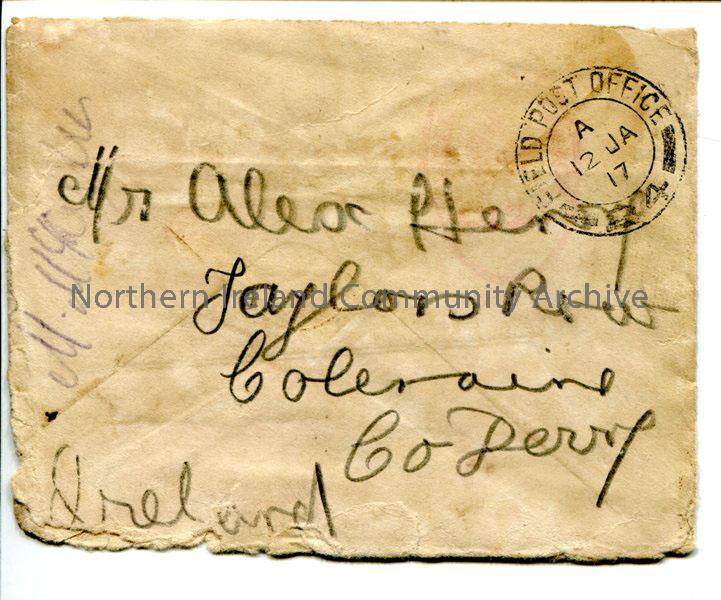 FIELD POST OFFICE
A
12 JA
17
Mr Alex Henry
Taylors Row
Coleraine
Co Derry
Ireland
Northern Ireland Community Archive